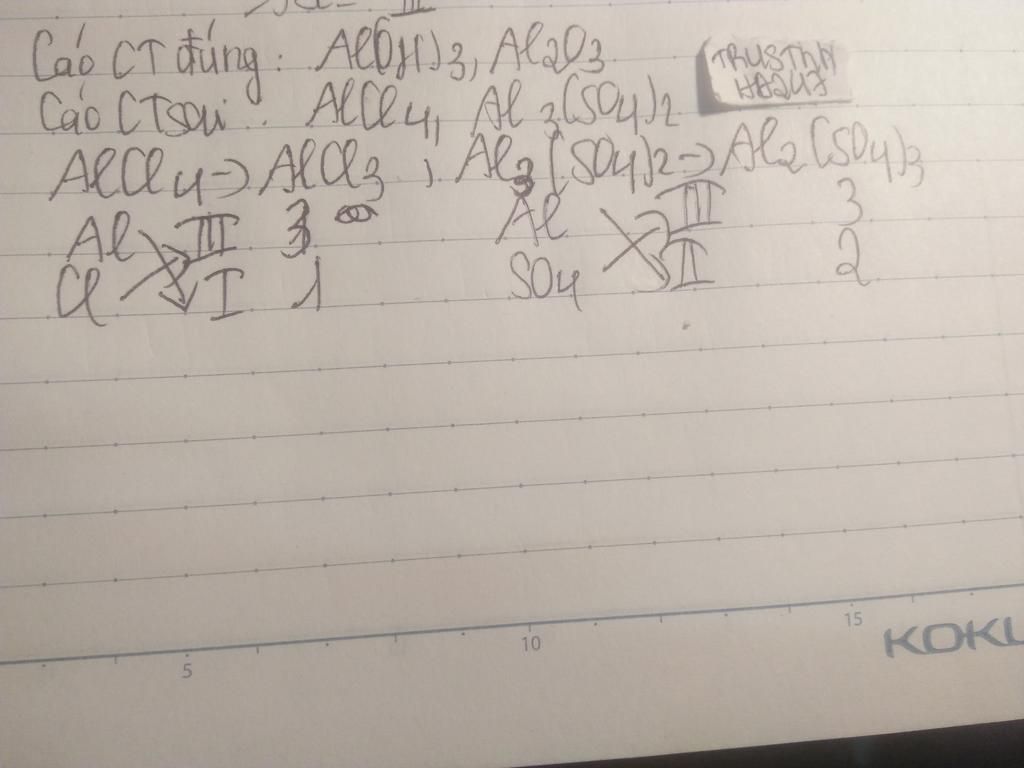 Các CT đúng: Al(OH)3, Al2O3
TRUSTNA
Các CT sai: AlCl4, Al3(SO4)2
AlCl4 -> AlCl3 ; Al3(SO4)2 -> Al2(SO4)3
Al III 3 Al III 3
Cl I 1 SO4 II 2
5 10 15
KOKU